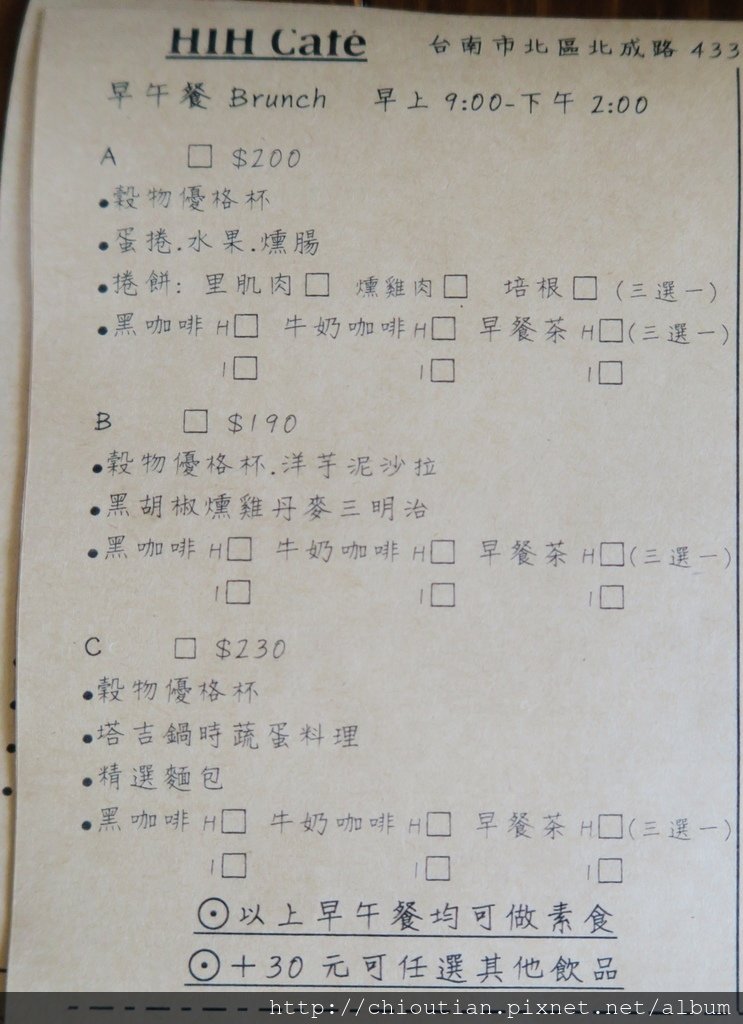 HIH Café 台南市北區北成路 433
早午餐 Brunch 早上 9:00-下午 2:00
A □ $200
•穀物優格杯
•蛋捲.水果.燻腸
•捲餅: 里肌肉□ 燻雞肉□ 培根□ (三選一)
•黑咖啡 H□ 牛奶咖啡 H□ 早餐茶 H□(三選一)
I□ I□ I□
B □ $190
•穀物優格杯.洋芋泥沙拉
•黑胡椒燻雞丹麥三明治
•黑咖啡 H□ 牛奶咖啡 H□ 早餐茶 H□(三選一)
I□ I□ I□
C □ $230
•穀物優格杯
•塔吉鍋時蔬蛋料理
•精選麵包
•黑咖啡 H□ 牛奶咖啡 H□ 早餐茶 H□(三選一)
I□ I□ I□
⊙以上早午餐均可做素食
⊙+30 元可任選其他飲品
http://chioutian.pixnet.net/album